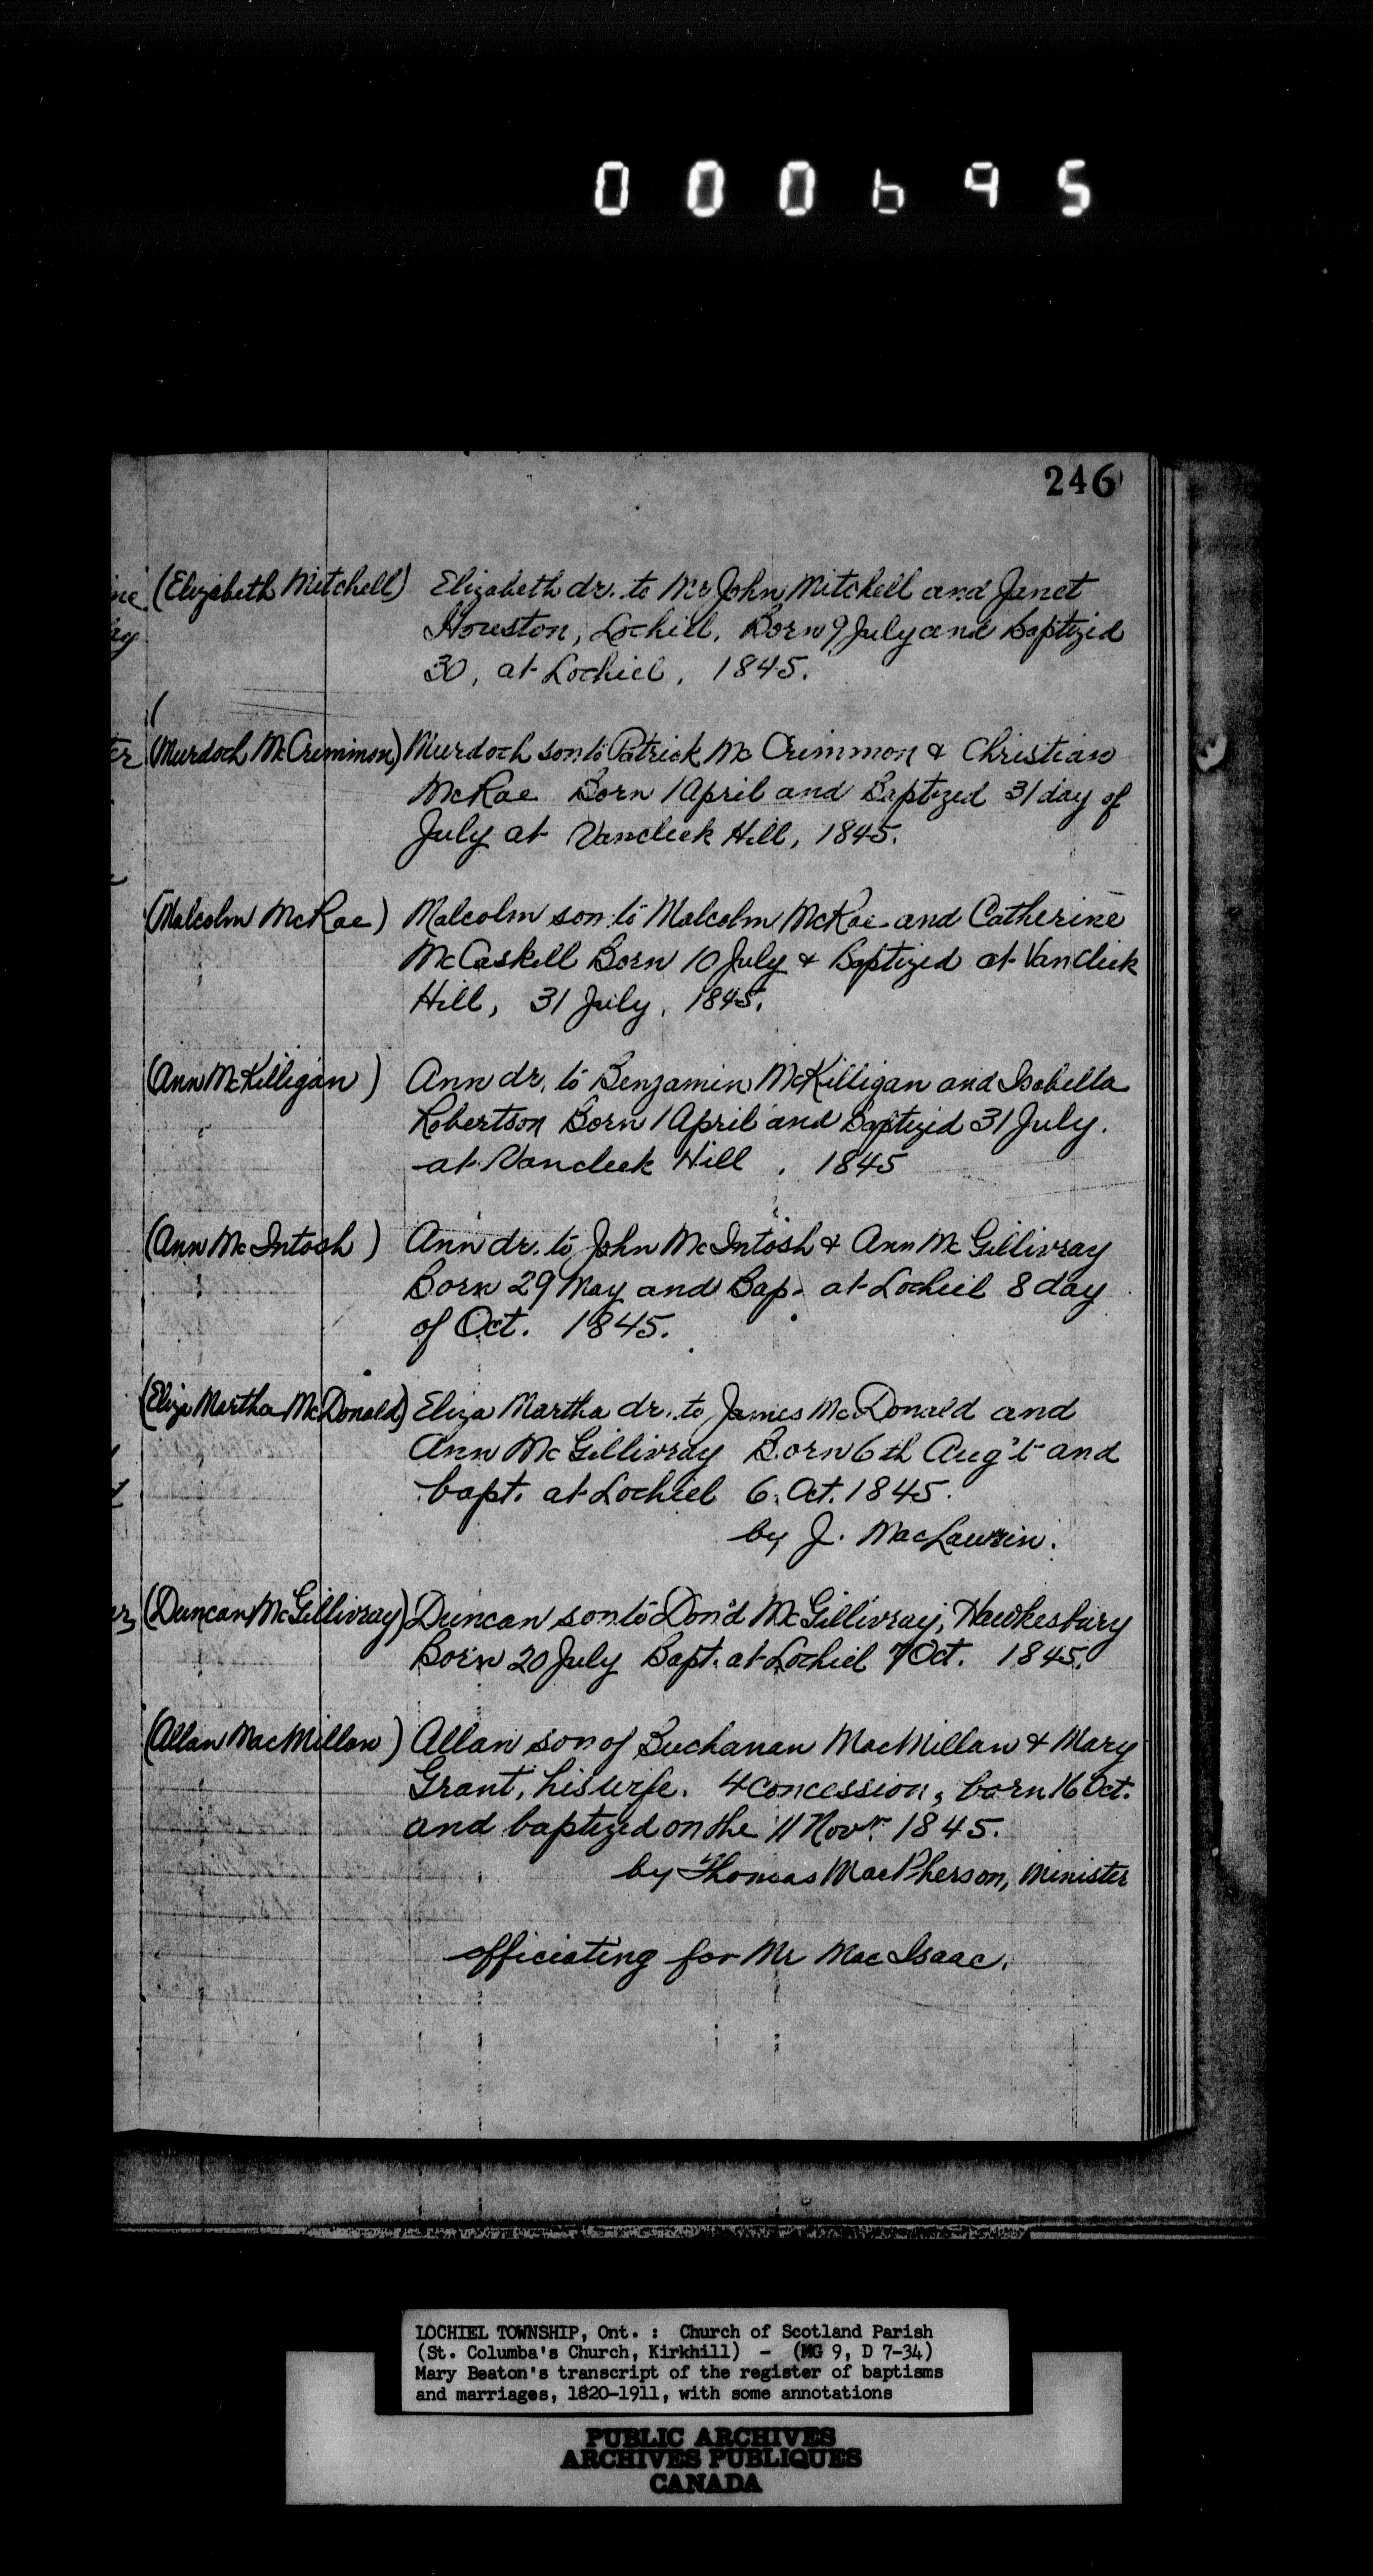 000695
246
(Elizabeth Mitchell) Elizabeth dr. to Mr John Mitchell and Janet
Houston, Lochiel. Born 9 July and Baptized
30, at Lochiel, 1845.
(Murdoch McCrimmon) Murdoch son to Patrick McCrimmon & Christian
McRae Born 1 April and Baptized 31 day of
July at Vancleek Hill, 1845.
(Malcolm McRae) Malcolm son to Malcolm McRae and Catherine
McCaskell Born 10 July & Baptized at Vancleek
Hill, 31 July, 1845.
(Ann McKilligan) Ann dr. to Benjamin McKilligan and Isabella
Robertson Born 1 April and Baptized 31 July.
at Vancleek Hill, 1845
(Ann McIntosh) Ann dr. to John McIntosh & Ann McGillivray
Born 29 May and Bap. at Lochiel 8 day
of Oct. 1845.
(Eliza Martha McDonald) Eliza Martha dr. to James McDonald and
Ann McGillivray Born 6th Aug't and
bapt. at Lochiel 6. Oct. 1845.
by J. MacLaurin.
(Duncan McGillivray) Duncan son to Don'd McGillivray, Hawkesbury
Born 20 July Bapt. at Lochiel 7 Oct. 1845.
(Allan MacMillan) Allan son of Buchanan MacMillan & Mary
Grant, his wife. 4 concession, born 16 Oct.
and baptized on the 11 Novr. 1845.
by Thomas MacPherson, Minister
officiating for Mr MacIsaac.
LOCHIEL TOWNSHIP, Ont. : Church of Scotland Parish
(St. Columba's Church, Kirkhill) - (MG 9, D 7-34)
Mary Beaton's transcript of the register of baptisms
and marriages, 1820-1911, with some annotations
PUBLIC ARCHIVES
ARCHIVES PUBLIQUES
CANADA